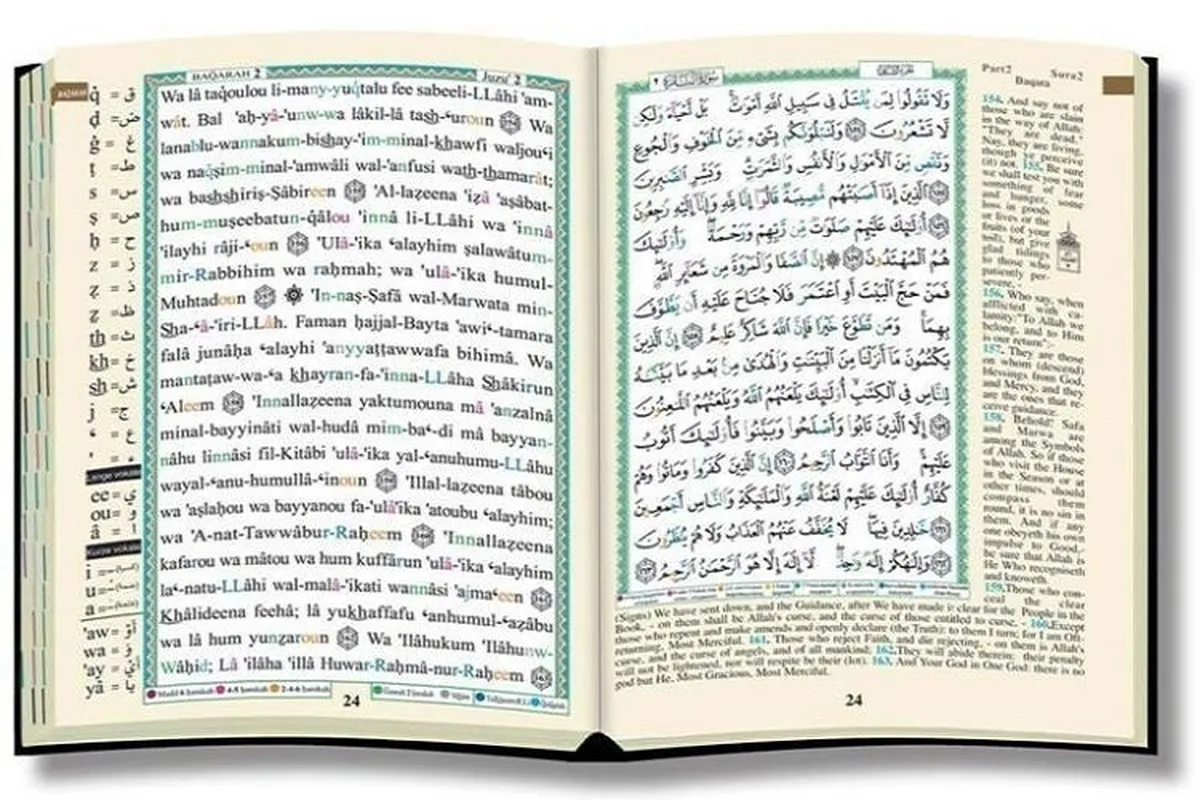 BAQARAH 2
Juzu' 2
Wa lâ taqoulou li-many-yuqtalu fee sabeeli-LLâhi 'am-
wât. Bal 'aḥ-yâ-'unw-wa lâkil-lâ tash-‘uroun Wa
lanablu-wannakum-bishay-'im-minal-khawfi waljou‘i
wa naqṣim-minal-'amwâli wal-'anfusi wath-thamarât;
wa bashshiriṣ-Ṣâbireen 'Al-lazeena 'iẓâ 'aṣâbat-
hum-muṣeebatun-qâlou 'innâ li-LLâhi wa 'innâ
'ilayhi râji-‘oun 'Ulâ-'ika ‘alayhim ṣalawâtum-
mir-Rabbihim wa raḥmah; wa 'ulâ-'ika humul-
Muhtadoun 'In-naṣ-Ṣafâ wal-Marwata min-
Sha-‘â-'iri-LLâh. Faman ḥajjal-Bayta 'awi‘-tamara
falâ junâḥa ‘alayhi 'anyyaṭṭawwafa bihimâ. Wa
mantaṭaw-wa-‘a khayran-fa-'inna-LLâha Shâkirun
‘Aleem 'Innallaẓeena yaktumouna mâ 'anzalnâ
minal-bayyinâti wal-hudâ mim-ba‘-di mâ bayyan-
nâhu linnâsi fil-Kitâbi 'ulâ-'ika yal-‘anuhumu-LLâhu
wayal-‘anu-humullâ-‘inoun 'Illal-laẓeena tâbou
wa 'aṣlaḥou wa bayyanou fa-'ulâ'ika 'atoubu ‘alayhim;
wa 'A-nat-Tawwâbur-Raḥeem 'Innallaẓeena
kafarou wa mâtou wa hum kuffârun 'ulâ-'ika ‘alayhim
la‘-natu-LLâhi wal-malâ-'ikati wannâsi 'ajma‘een
Khâlideena feehâ; lâ yukhaffafu ‘anhumul-‘aẓâbu
wa lâ hum yunẓaroun Wa 'Ilâhukum 'Ilâhunw-
Wâḥid; Lâ 'ilâha 'illâ Huwar-Raḥmâ-nur-Raḥeem
q = ق
ḍ = ض
ġ = غ
ṭ = ط
s = س
ṣ = ص
ḥ = ح
z = ز
ẓ = ذ
ẓ = ظ
th = ث
kh = خ
sh = ش
j = ج
‘ = ع
' = ء
ee = ي
ou = و
â = ا
i =
u =
a =
'aw = أَوْ
wa = وَ
'ay = أَيْ
yâ = يا
24
وَلَا تَقُولُوا لِمَن يُقْتَلُ فِي سَبِيلِ اللَّهِ أَمْوَاتٌ بَلْ أَحْيَاءٌ وَلَٰكِن
لَّا تَشْعُرُونَ وَلَنَبْلُوَنَّكُم بِشَيْءٍ مِّنَ الْخَوْفِ وَالْجُوعِ
وَنَقْصٍ مِّنَ الْأَمْوَالِ وَالْأَنفُسِ وَالثَّمَرَاتِ وَبَشِّرِ الصَّابِرِينَ
الَّذِينَ إِذَا أَصَابَتْهُم مُّصِيبَةٌ قَالُوا إِنَّا لِلَّهِ وَإِنَّا إِلَيْهِ رَاجِعُونَ
أُولَٰئِكَ عَلَيْهِمْ صَلَوَاتٌ مِّن رَّبِّهِمْ وَرَحْمَةٌ وَأُولَٰئِكَ
هُمُ الْمُهْتَدُونَ إِنَّ الصَّفَا وَالْمَرْوَةَ مِن شَعَائِرِ اللَّهِ
فَمَنْ حَجَّ الْبَيْتَ أَوِ اعْتَمَرَ فَلَا جُنَاحَ عَلَيْهِ أَن يَطَّوَّفَ
بِهِمَا وَمَن تَطَوَّعَ خَيْرًا فَإِنَّ اللَّهَ شَاكِرٌ عَلِيمٌ إِنَّ الَّذِينَ
يَكْتُمُونَ مَا أَنزَلْنَا مِنَ الْبَيِّنَاتِ وَالْهُدَىٰ مِن بَعْدِ مَا بَيَّنَّاهُ
لِلنَّاسِ فِي الْكِتَابِ أُولَٰئِكَ يَلْعَنُهُمُ اللَّهُ وَيَلْعَنُهُمُ اللَّاعِنُونَ
إِلَّا الَّذِينَ تَابُوا وَأَصْلَحُوا وَبَيَّنُوا فَأُولَٰئِكَ أَتُوبُ
عَلَيْهِمْ وَأَنَا التَّوَّابُ الرَّحِيمُ إِنَّ الَّذِينَ كَفَرُوا وَمَاتُوا وَهُمْ
كُفَّارٌ أُولَٰئِكَ عَلَيْهِمْ لَعْنَةُ اللَّهِ وَالْمَلَائِكَةِ وَالنَّاسِ أَجْمَعِينَ
خَالِدِينَ فِيهَا لَا يُخَفَّفُ عَنْهُمُ الْعَذَابُ وَلَا هُمْ يُنظَرُونَ
وَإِلَٰهُكُمْ إِلَٰهٌ وَاحِدٌ لَّا إِلَٰهَ إِلَّا هُوَ الرَّحْمَٰنُ الرَّحِيمُ
Part2 Sura2
Baqara
154. And say not of
those who are slain
in the way of Allah:
"They are dead."
Nay, they are living,
though ye perceive
(it) not. 155. Be sure
we shall test you with
something of fear
and hunger, some
loss in goods
or lives or the
fruits (of your
toil), but give
glad tidings
to those who
patiently per-
severe,-
156. Who say, when
afflicted with ca-
lamity:"To Allah we
belong, and to Him
is our return":-
157. They are those
on whom (descend)
blessings from God,
and Mercy, and they
are the ones that re-
ceive guidance.
158. Behold! Safa
and Marwa are
among the Symbols
of Allah. So if those
who visit the House
in the Season or at
other times, should
compass them
round, it is no sin in
them. And if any
one obeyeth his own
impulse to Good,-
be sure that Allah is
He Who recogniseth
and knoweth.
159.Those who con-
ceal the clear
(Signs) We have sent down, and the Guidance, after We have made it clear for the People in the
Book, - on them shall be Allah's curse, and the curse of those entitled to curse, - 160.Except
those who repent and make amends and openly declare (the Truth): to them I turn; for I am Oft-
returning, Most Merciful. 161. Those who reject Faith, and die rejecting, - on them is Allah's
curse, and the curse of angels, and of all mankind; 162.They will abide therein: their penalty
will not be lightened, nor will respite be their (lot). 163. And Your God is One God: there is no
god but He, Most Gracious, Most Merciful.
24